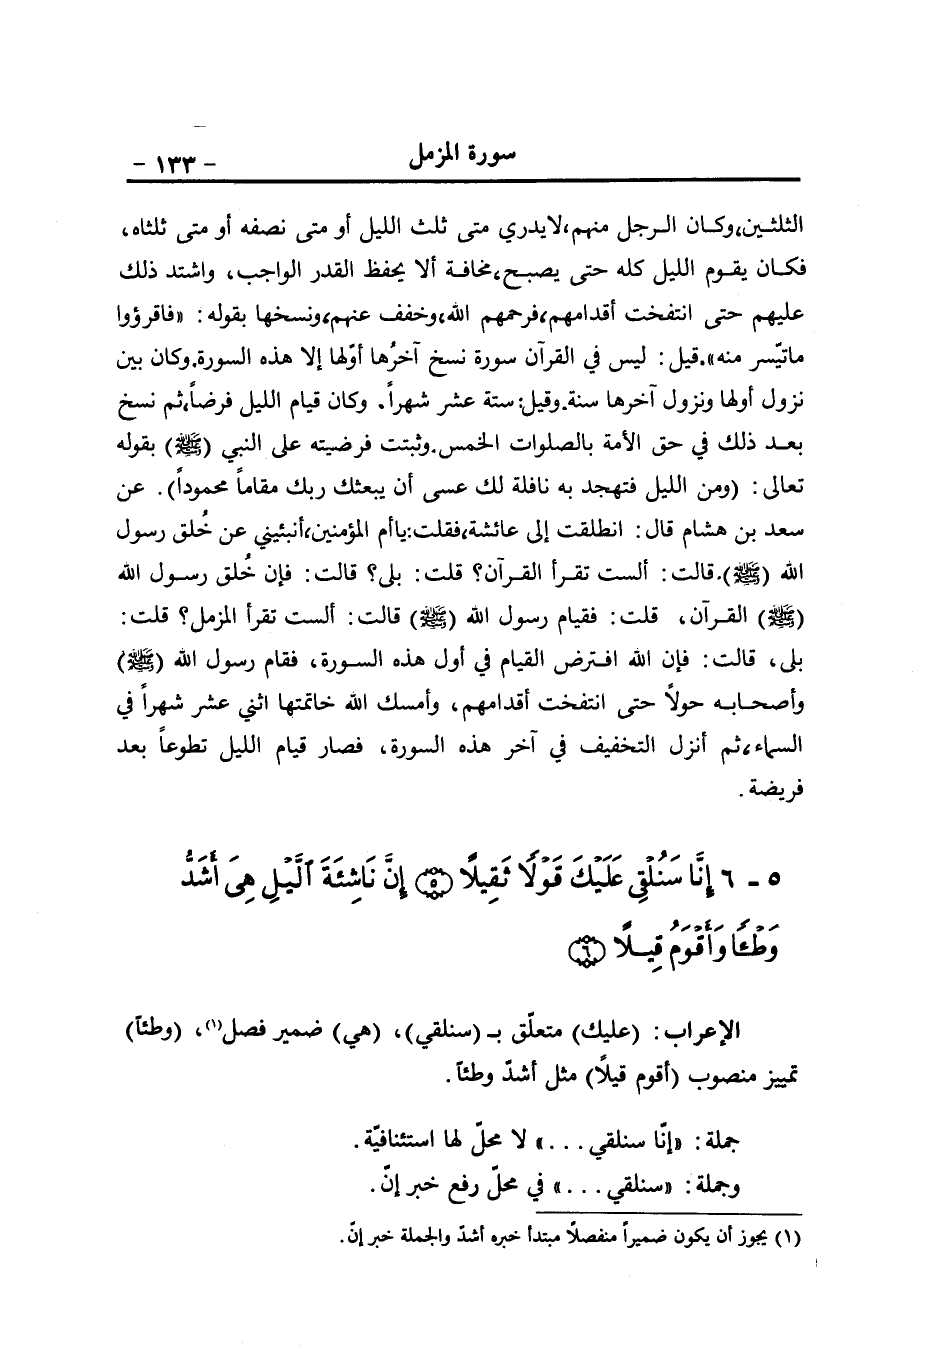 سورة المزمل
- ١٣٣ -
الثلثين، وكان الرجل منهم، لايدري متى ثلث الليل أو متى نصفه أو متى ثلثاه،
فكان يقوم الليل كله حتى يصبح، مخافة ألا يحفظ القدر الواجب، واشتد ذلك
عليهم حتى انتفخت أقدامهم، فرحمهم الله، وخفف عنهم، ونسخها بقوله: «فاقرؤوا
ماتيّسر منه». قيل: ليس في القرآن سورة نسخ آخرُها أوّلها إلا هذه السورة. وكان بين
نزول أولها ونزول آخرها سنة. وقيل: ستة عشر شهراً. وكان قيام الليل فرضاً، ثم نسخ
بعد ذلك في حق الأمة بالصلوات الخمس. وثبتت فرضيته على النبي (ﷺ) بقوله
تعالى: (ومن الليل فتهجد به نافلة لك عسى أن يبعثك ربك مقاماً محموداً). عن
سعد بن هشام قال: انطلقت إلى عائشة، فقلت: ياأم المؤمنين، أنبئيني عن خُلق رسول
الله (ﷺ). قالت: ألست تقرأ القرآن؟ قلت: بلى؟ قالت: فإن خُلق رسول الله
(ﷺ) القرآن، قلت: فقيام رسول الله (ﷺ) قالت: ألست تقرأ المزمل؟ قلت:
بلى، قالت: فإن الله افترض القيام في أول هذه السورة، فقام رسول الله (ﷺ)
وأصحابه حولاً حتى انتفخت أقدامهم، وأمسك الله خاتمتها اثني عشر شهراً في
السماء، ثم أنزل التخفيف في آخر هذه السورة، فصار قيام الليل تطوعاً بعد
فريضة.
٥ - ٦ إِنَّا سَنُلْقِي عَلَيْكَ قَوْلًا ثَقِيلًا ﴿٥﴾ إِنَّ نَاشِئَةَ ٱلَّيْلِ هِىَ أَشَدُّ
وَطْـًٔا وَأَقْوَمُ قِيلًا ﴿٦﴾
الإعراب: (عليك) متعلّق بـ (سنلقي)، (هي) ضمير فصل(١)، (وطئاً)
تمييز منصوب (أقوم قيلًا) مثل أشدّ وطئاً.
جملة: «إنّا سنلقي...» لا محلّ لها استئنافيّة.
وجملة: «سنلقي...» في محلّ رفع خبر إنّ.
(١) يجوز أن يكون ضميراً منفصلًا مبتدأ خبره أشدّ والجملة خبر إنّ.